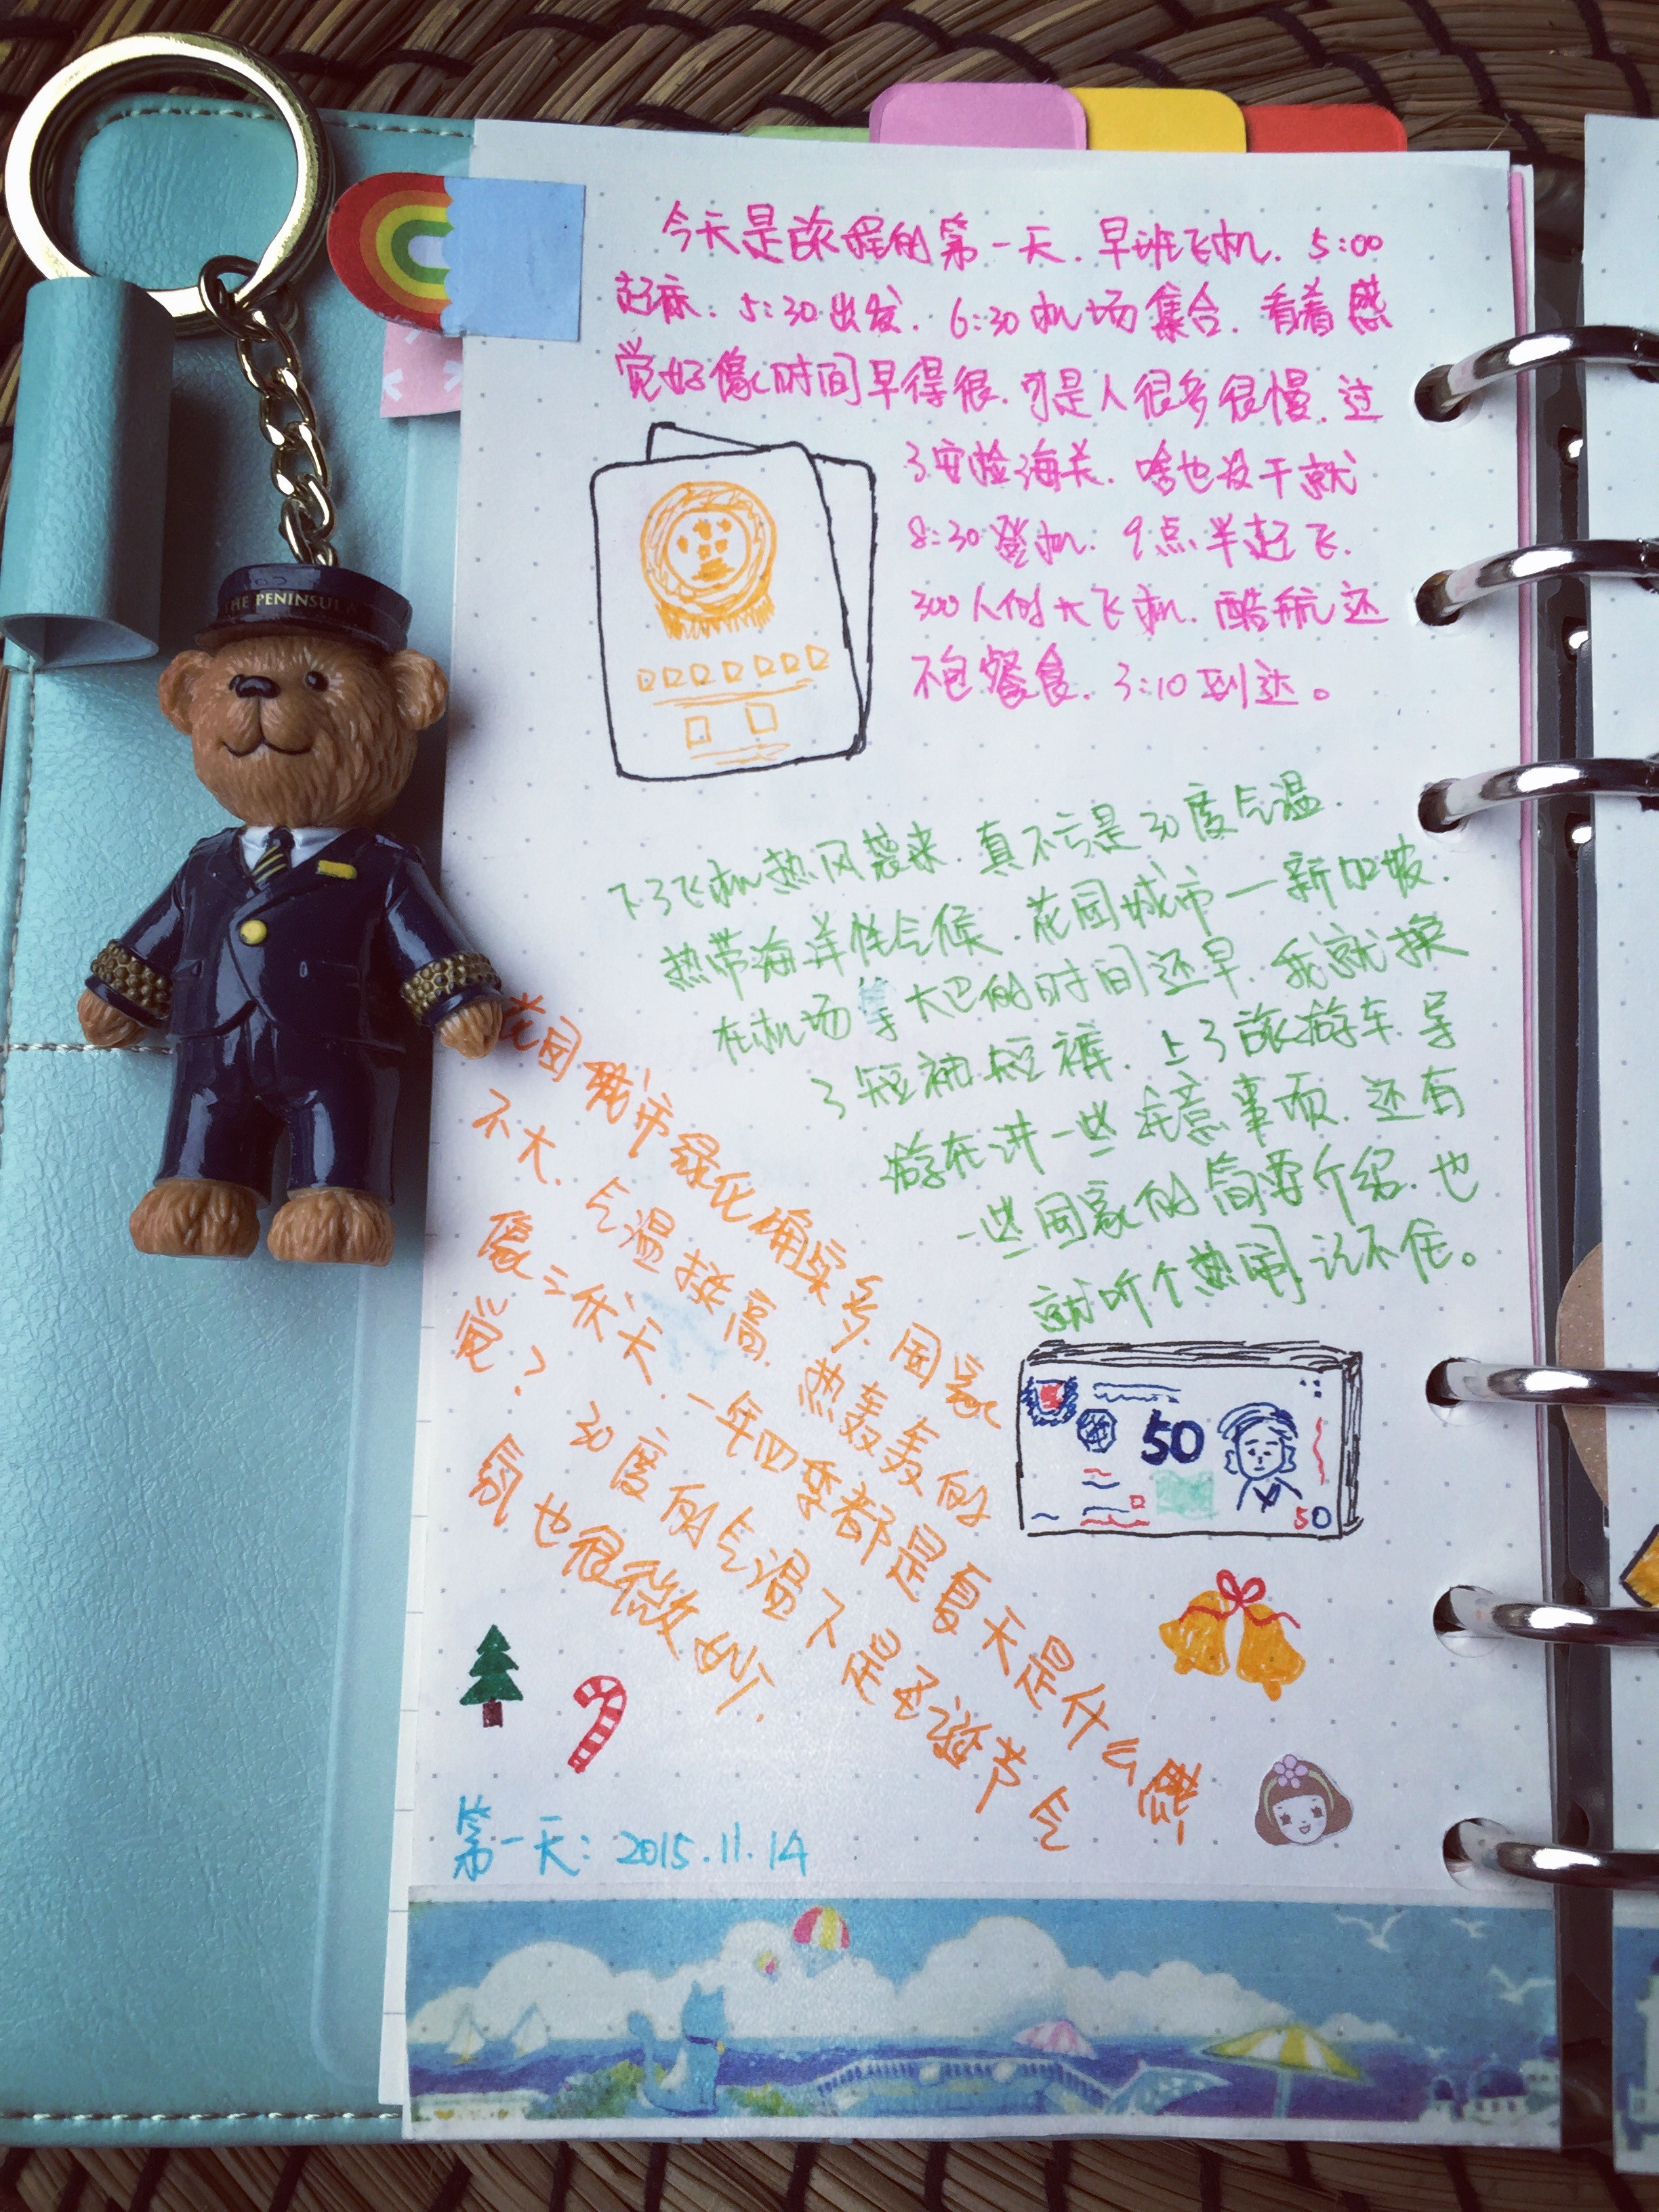 THE PENINSULA
今天是旅程的第一天.早班飞机.5:00
起床.5:30出发.6:30机场集合.看着感
觉好像时间早得很.可是人很多很慢.过
了安检海关.啥也没干就
8:30登机.9点半起飞.
300人的大飞机.酷航还
不包餐食.3:10到达。
下了飞机热风袭来.真不亏是30度气温.
热带海洋性气候.花园城市—新加坡.
在机场等大巴的时间还早.我就换
了短袖短裤.上了旅游车.导
游在讲一些注意事项.还有
一些国家的简要介绍.也
就听个热闹记不住。
花园城市绿化确实多.国家
不大.气温挺高.热轰轰的
像三伏天.一年四季都是夏天是什么感
觉?30度的气温下是圣诞节气
氛也很微妙.
50
50
第一天:2015.11.14